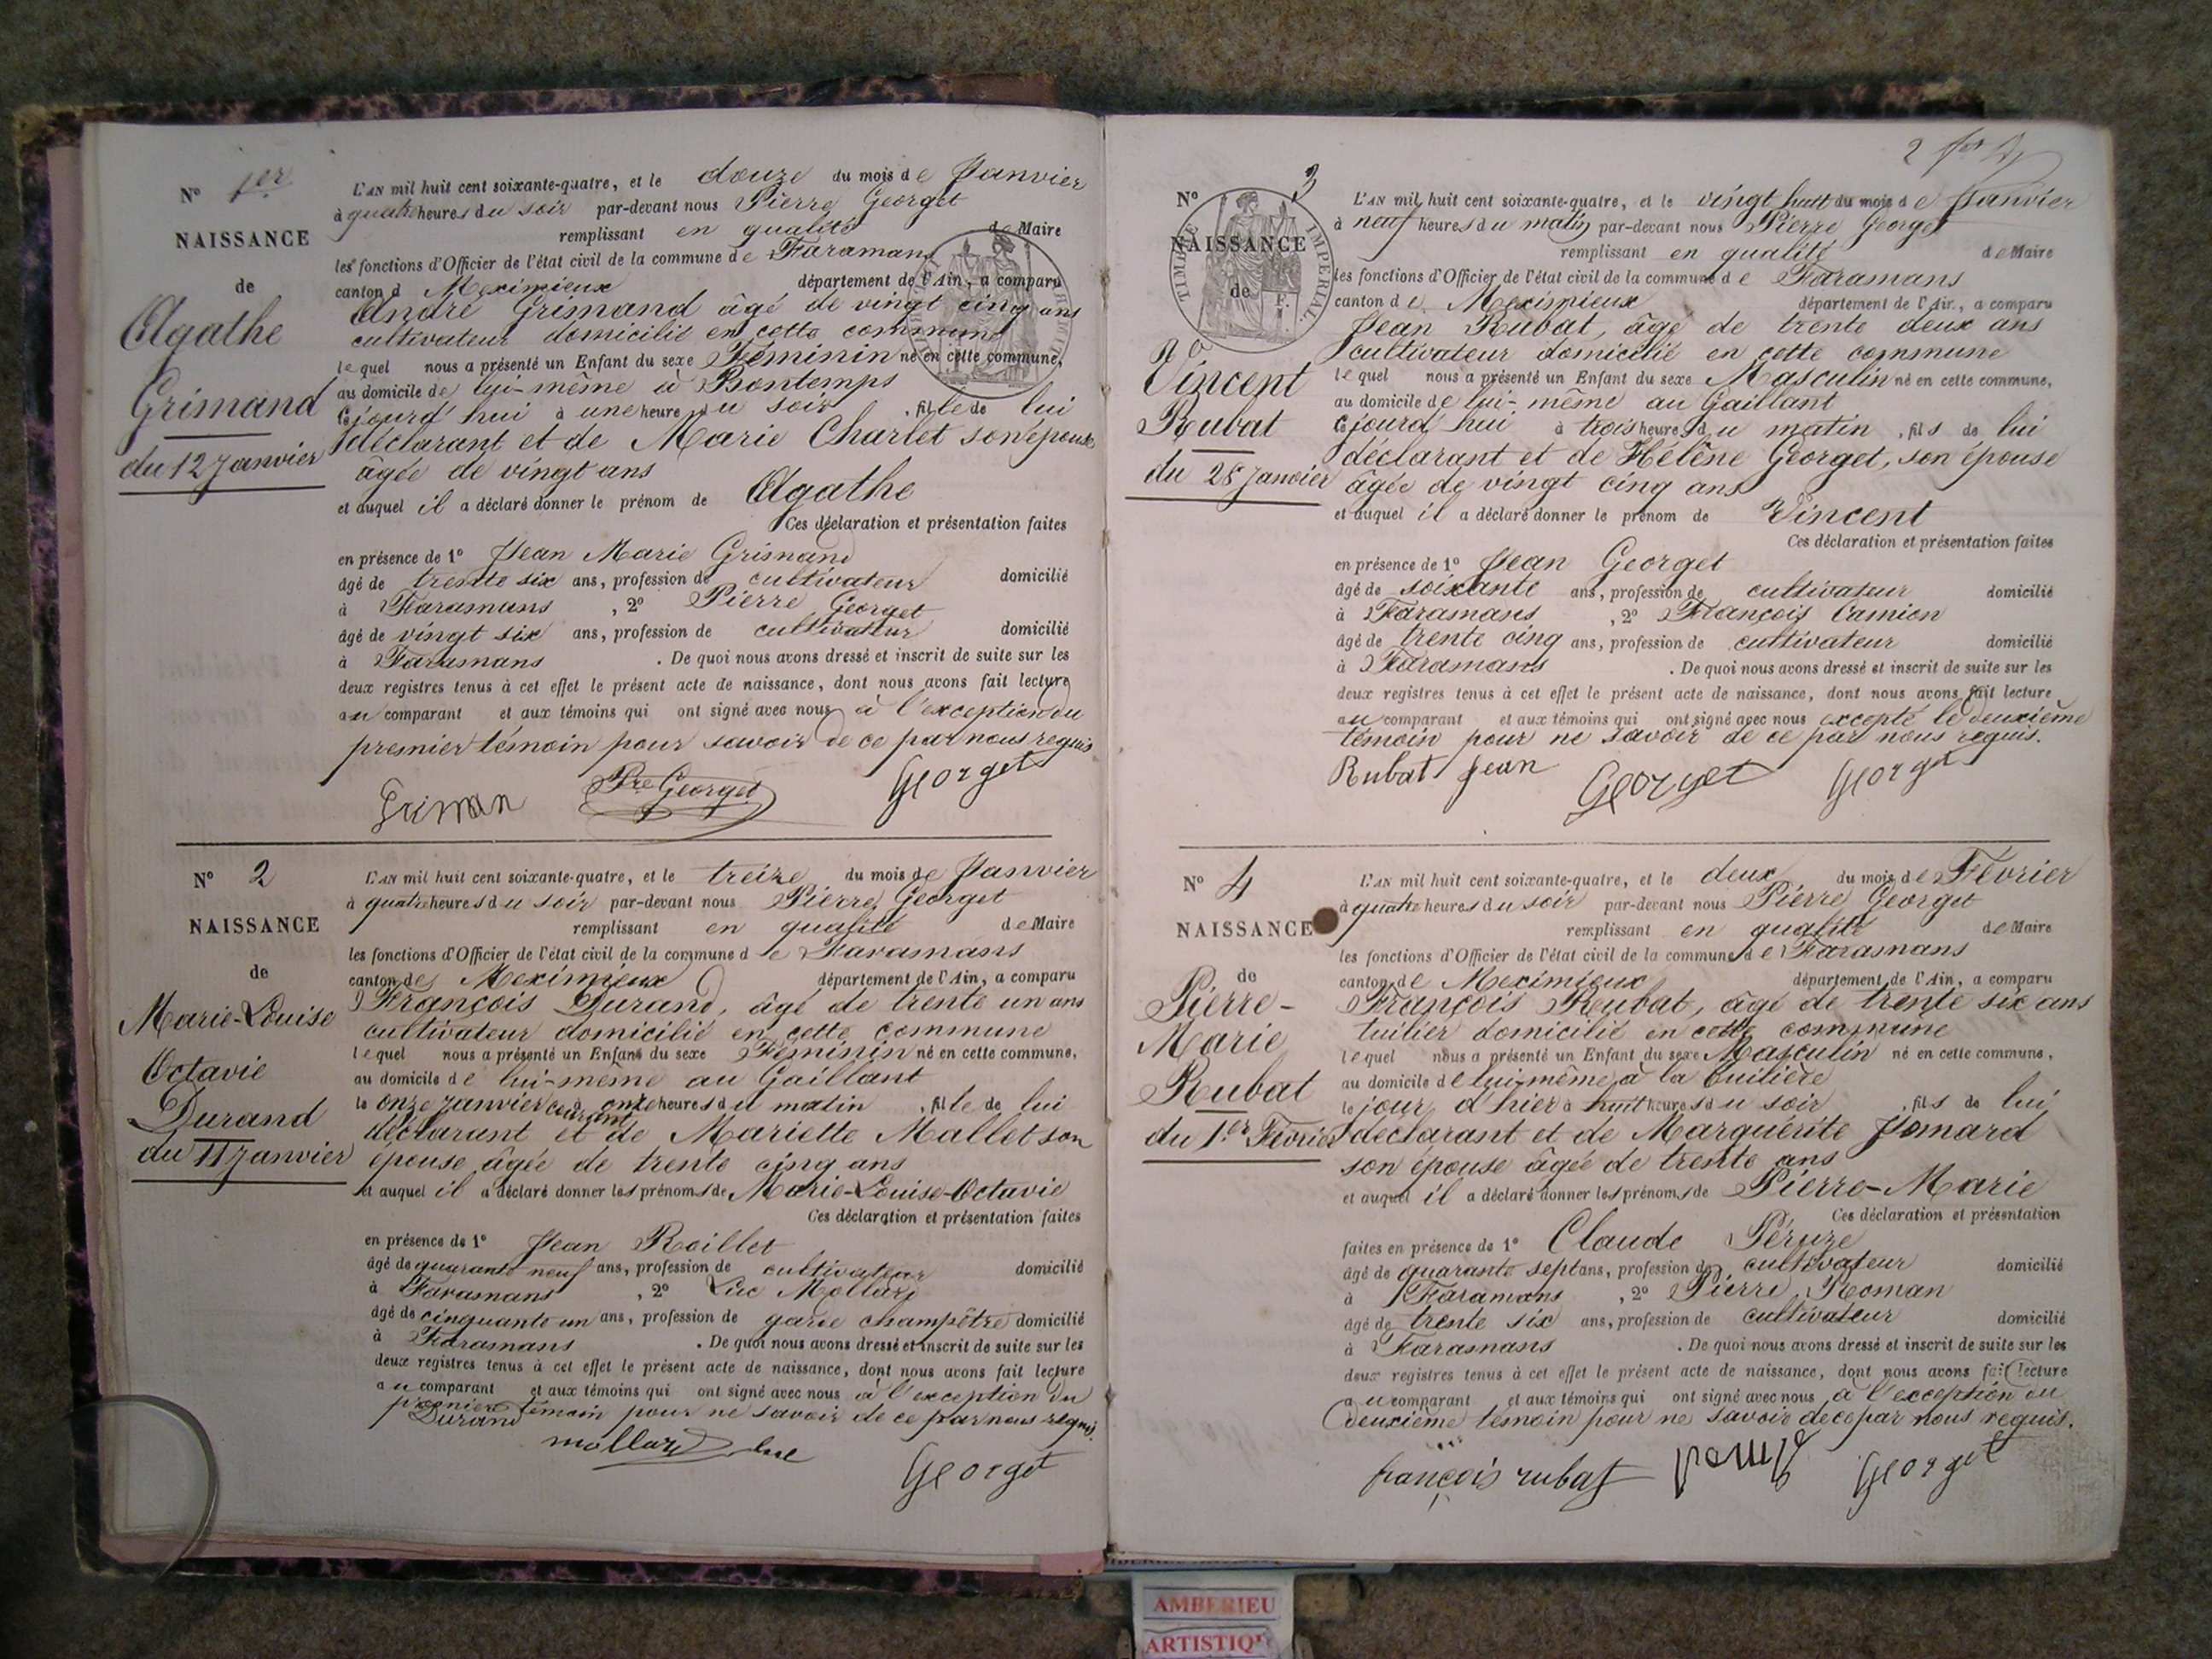 N° 1er
NAISSANCE
de
Agathe
Grimand
du 12 Janvier
L'AN mil huit cent soixante-quatre, et le douze du mois de Janvier
à quatre heures du soir par-devant nous Pierre Georget
remplissant en qualité de Maire
les fonctions d'Officier de l'état civil de la commune de Faramans
canton d Meximieux département de l'Ain, a comparu
André Grimand âgé de vingt cinq ans
cultivateur domicilié en cette commune
lequel nous a présenté un Enfant du sexe Féminin né en cette commune,
au domicile de lui-même à Bontemps
cejourd'hui à une heure du soir, fille de lui
déclarant et de Marie Charlet son épouse
âgée de vingt ans
et auquel il a déclaré donner le prénom de Agathe
Ces déclaration et présentation faites
en présence de 1° Jean Marie Grimand
âgé de trente six ans, profession de cultivateur domicilié
à Faramans, 2° Pierre Georget
âgé de vingt six ans, profession de cultivateur domicilié
à Faramans. De quoi nous avons dressé et inscrit de suite sur les
deux registres tenus à cet effet le présent acte de naissance, dont nous avons fait lecture
au comparant et aux témoins qui ont signé avec nous à l'exception du
premier témoin pour savoir de ce par nous requis
Griman Pre Georget Georget
N° 2
NAISSANCE
de
Marie-Louise
Octavie
Durand
du 11 Janvier
L'AN mil huit cent soixante-quatre, et le treize du mois de Janvier
à quatre heures du soir par-devant nous Pierre Georget
remplissant en qualité de Maire
les fonctions d'Officier de l'état civil de la commune de Faramans
canton de Meximieux département de l'Ain, a comparu
François Durand, âgé de trente un ans
cultivateur domicilié en cette commune
lequel nous a présenté un Enfant du sexe Féminin né en cette commune,
au domicile de lui-même au Gaillant
le onze janvier courant à onze heures du matin, fille de lui
déclarant et de Mariette Mallet son
épouse âgée de trente cinq ans
et auquel il a déclaré donner les prénoms de Marie-Louise-Octavie
Ces déclaration et présentation faites
en présence de 1° Jean Roillet
âgé de quarante neuf ans, profession de cultivateur domicilié
à Faramans, 2° Luc Mollard
âgé de cinquante un ans, profession de garde champêtre domicilié
à Faramans. De quoi nous avons dressé et inscrit de suite sur les
deux registres tenus à cet effet le présent acte de naissance, dont nous avons fait lecture
au comparant et aux témoins qui ont signé avec nous à l'exception du
premier témoin pour ne savoir de ce par nous requis.
Durand
mollard luc Georget
2
N° 3
NAISSANCE
de
TIMBRE IMPERIAL
Vincent
Rubat
du 28 Janvier
L'AN mil huit cent soixante-quatre, et le vingt huit du mois de Janvier
à neuf heures du matin par-devant nous Pierre Georget
remplissant en qualité de Maire
les fonctions d'Officier de l'état civil de la commune de Faramans
canton de Meximieux département de l'Ain, a comparu
Jean Rubat, âgé de trente deux ans
cultivateur domicilié en cette commune
lequel nous a présenté un Enfant du sexe Masculin né en cette commune,
au domicile de lui-même au Gaillant
cejourd'hui à trois heures du matin, fils de lui
déclarant et de Hélène Georget, son épouse
âgée de vingt cinq ans
et auquel il a déclaré donner le prénom de Vincent
Ces déclaration et présentation faites
en présence de 1° Jean Georget
âgé de soixante ans, profession de cultivateur domicilié
à Faramans, 2° François Camion
âgé de trente cinq ans, profession de cultivateur domicilié
à Faramans. De quoi nous avons dressé et inscrit de suite sur les
deux registres tenus à cet effet le présent acte de naissance, dont nous avons fait lecture
au comparant et aux témoins qui ont signé avec nous excepté le deuxième
témoin pour ne savoir de ce par nous requis.
Rubat Jean Georget Georget
N° 4
NAISSANCE
de
Pierre-
Marie
Rubat
du 1er Février
L'AN mil huit cent soixante-quatre, et le deux du mois de Février
à quatre heures du soir par-devant nous Pierre Georget
remplissant en qualité de Maire
les fonctions d'Officier de l'état civil de la commune de Faramans
canton de Meximieux département de l'Ain, a comparu
François Rubat, âgé de trente six ans
tuilier domicilié en cette commune
lequel nous a présenté un Enfant du sexe Masculin né en cette commune,
au domicile de lui-même à la tuilière
le jour d'hier à huit heures du soir, fils de lui
déclarant et de Marguerite Jomard
son épouse âgée de trente ans
et auquel il a déclaré donner les prénoms de Pierre-Marie
Ces déclaration et présentation
faites en présence de 1° Claude Péruze
âgé de quarante sept ans, profession de cultivateur domicilié
à Faramans, 2° Pierre Roman
âgé de trente six ans, profession de cultivateur domicilié
à Faramans. De quoi nous avons dressé et inscrit de suite sur les
deux registres tenus à cet effet le présent acte de naissance, dont nous avons fait lecture
au comparant et aux témoins qui ont signé avec nous à l'exception du
deuxième témoin pour ne savoir de ce par nous requis.
françois rubat Georget
AMBERIEU
ARTISTIQUE